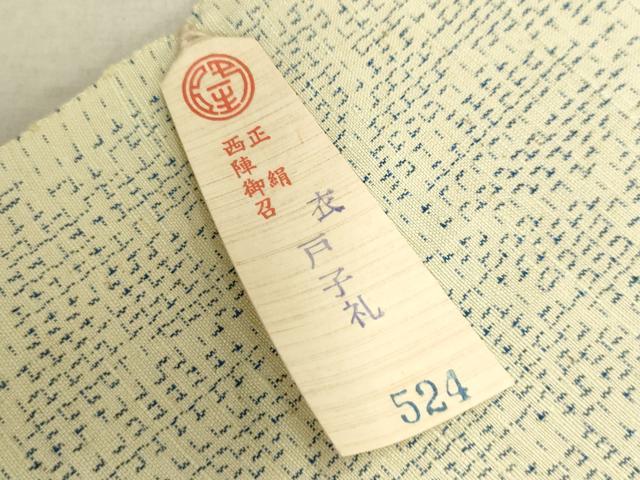 正絹
西陣御召
衣戸子礼
524